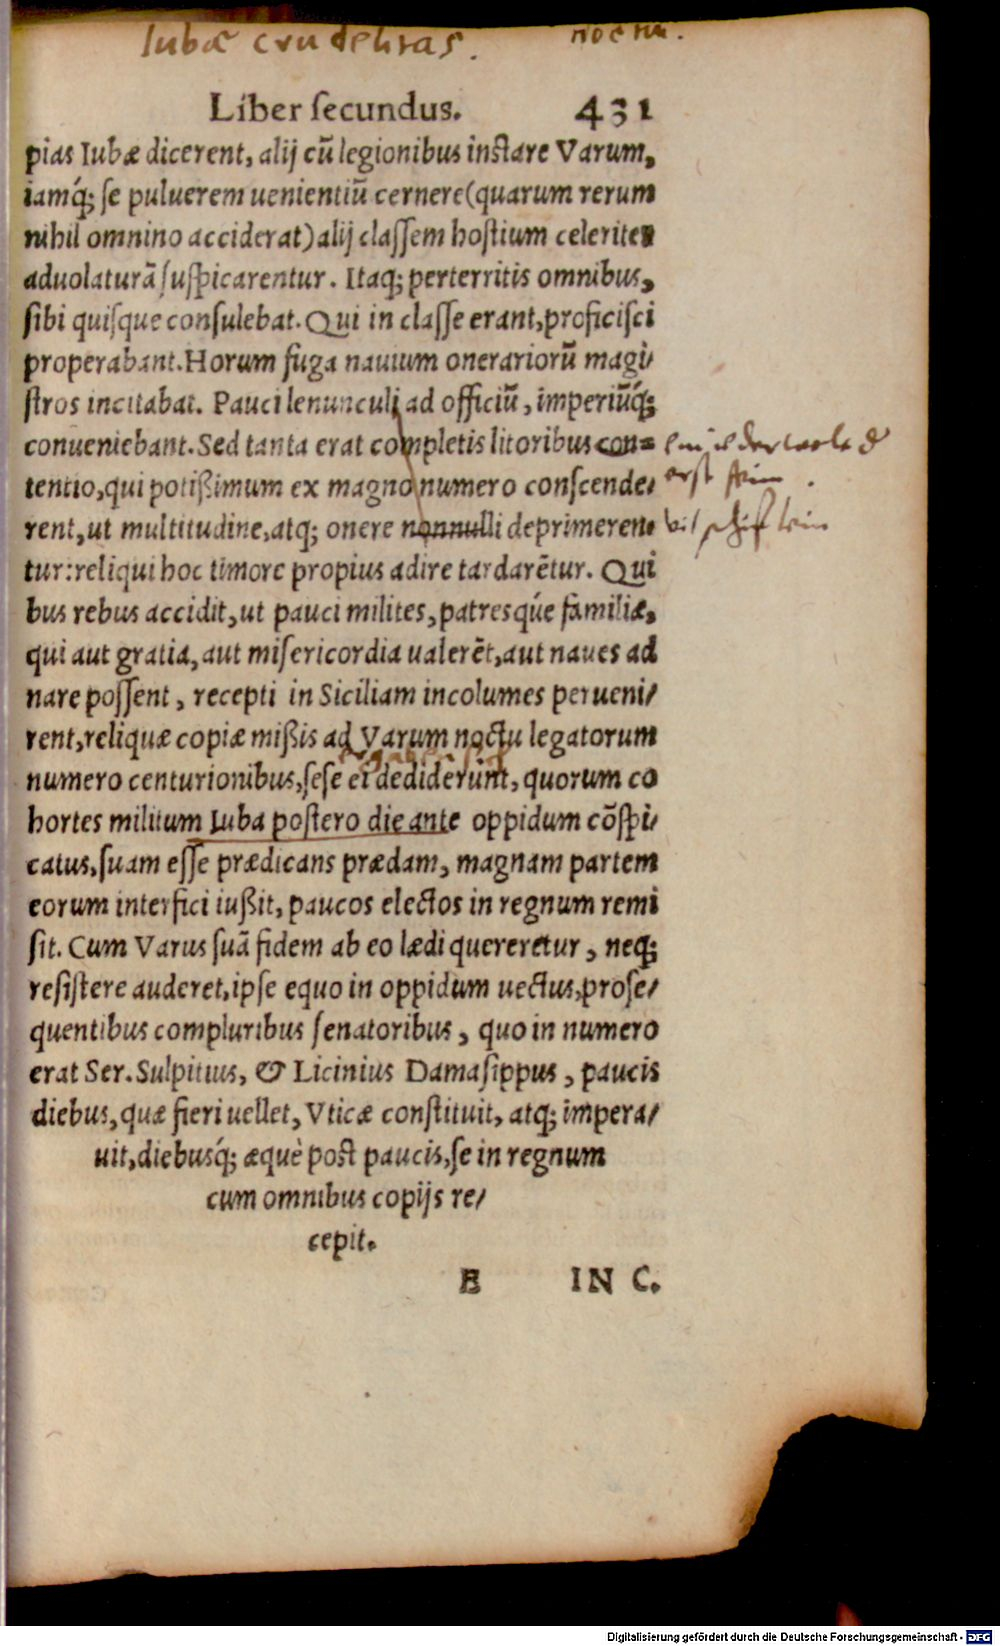 Iubæ crudelitas.
Liber ſecundus. 431
pias Iubæ dicerent, alij cū legionibus inſtare Varum,
iamq́; ſe puluerem uenientiū cernere (quarum rerum
nihil omnino acciderat) alij claſſem hoſtium celeriter
aduolaturā ſuſpicarentur. Itaq; perterritis omnibus,
ſibi quiſque conſulebat. Qui in claſſe erant, proficiſci
properabant. Horum fuga nauium onerariorū magi/
ſtros incitabat. Pauci lenunculi ad officiū, imperiūq́;
conueniebant. Sed tanta erat completis litoribus con=
tentio, qui potißimum ex magno numero conſcende/
rent, ut multitudine, atq; onere nonnulli deprimeren/
tur: reliqui hoc timore propius adire tardarētur. Qui
bus rebus accidit, ut pauci milites, patresq́ue familiæ,
qui aut gratia, aut miſericordia ualerēt, aut naues ad
nare poſſent, recepti in Siciliam incolumes perueni/
rent, reliquæ copiæ mißis ad Varum noctu legatorum
numero centurionibus, ſeſe ei dediderunt, quorum co
hortes militum Iuba poſtero die ante oppidum cōſpi/
catus, ſuam eſſe prædicans prædam, magnam partem
eorum interfici iußit, paucos electos in regnum remi
ſit. Cum Varus ſuā fidem ab eo lædi quereretur, neq;
reſiſtere auderet, ipſe equo in oppidum uectus, proſe/
quentibus compluribus ſenatoribus, quo in numero
erat Ser. Sulpitius, & Licinius Damaſippus, paucis
diebus, quæ fieri uellet, Vticæ conſtituit, atq; impera/
uit, diebusq́; æquè poſt paucis, ſe in regnum
cum omnibus copijs re/
cepit.
E IN C.
Digitalisierung gefördert durch die Deutsche Forschungsgemeinschaft - DFG